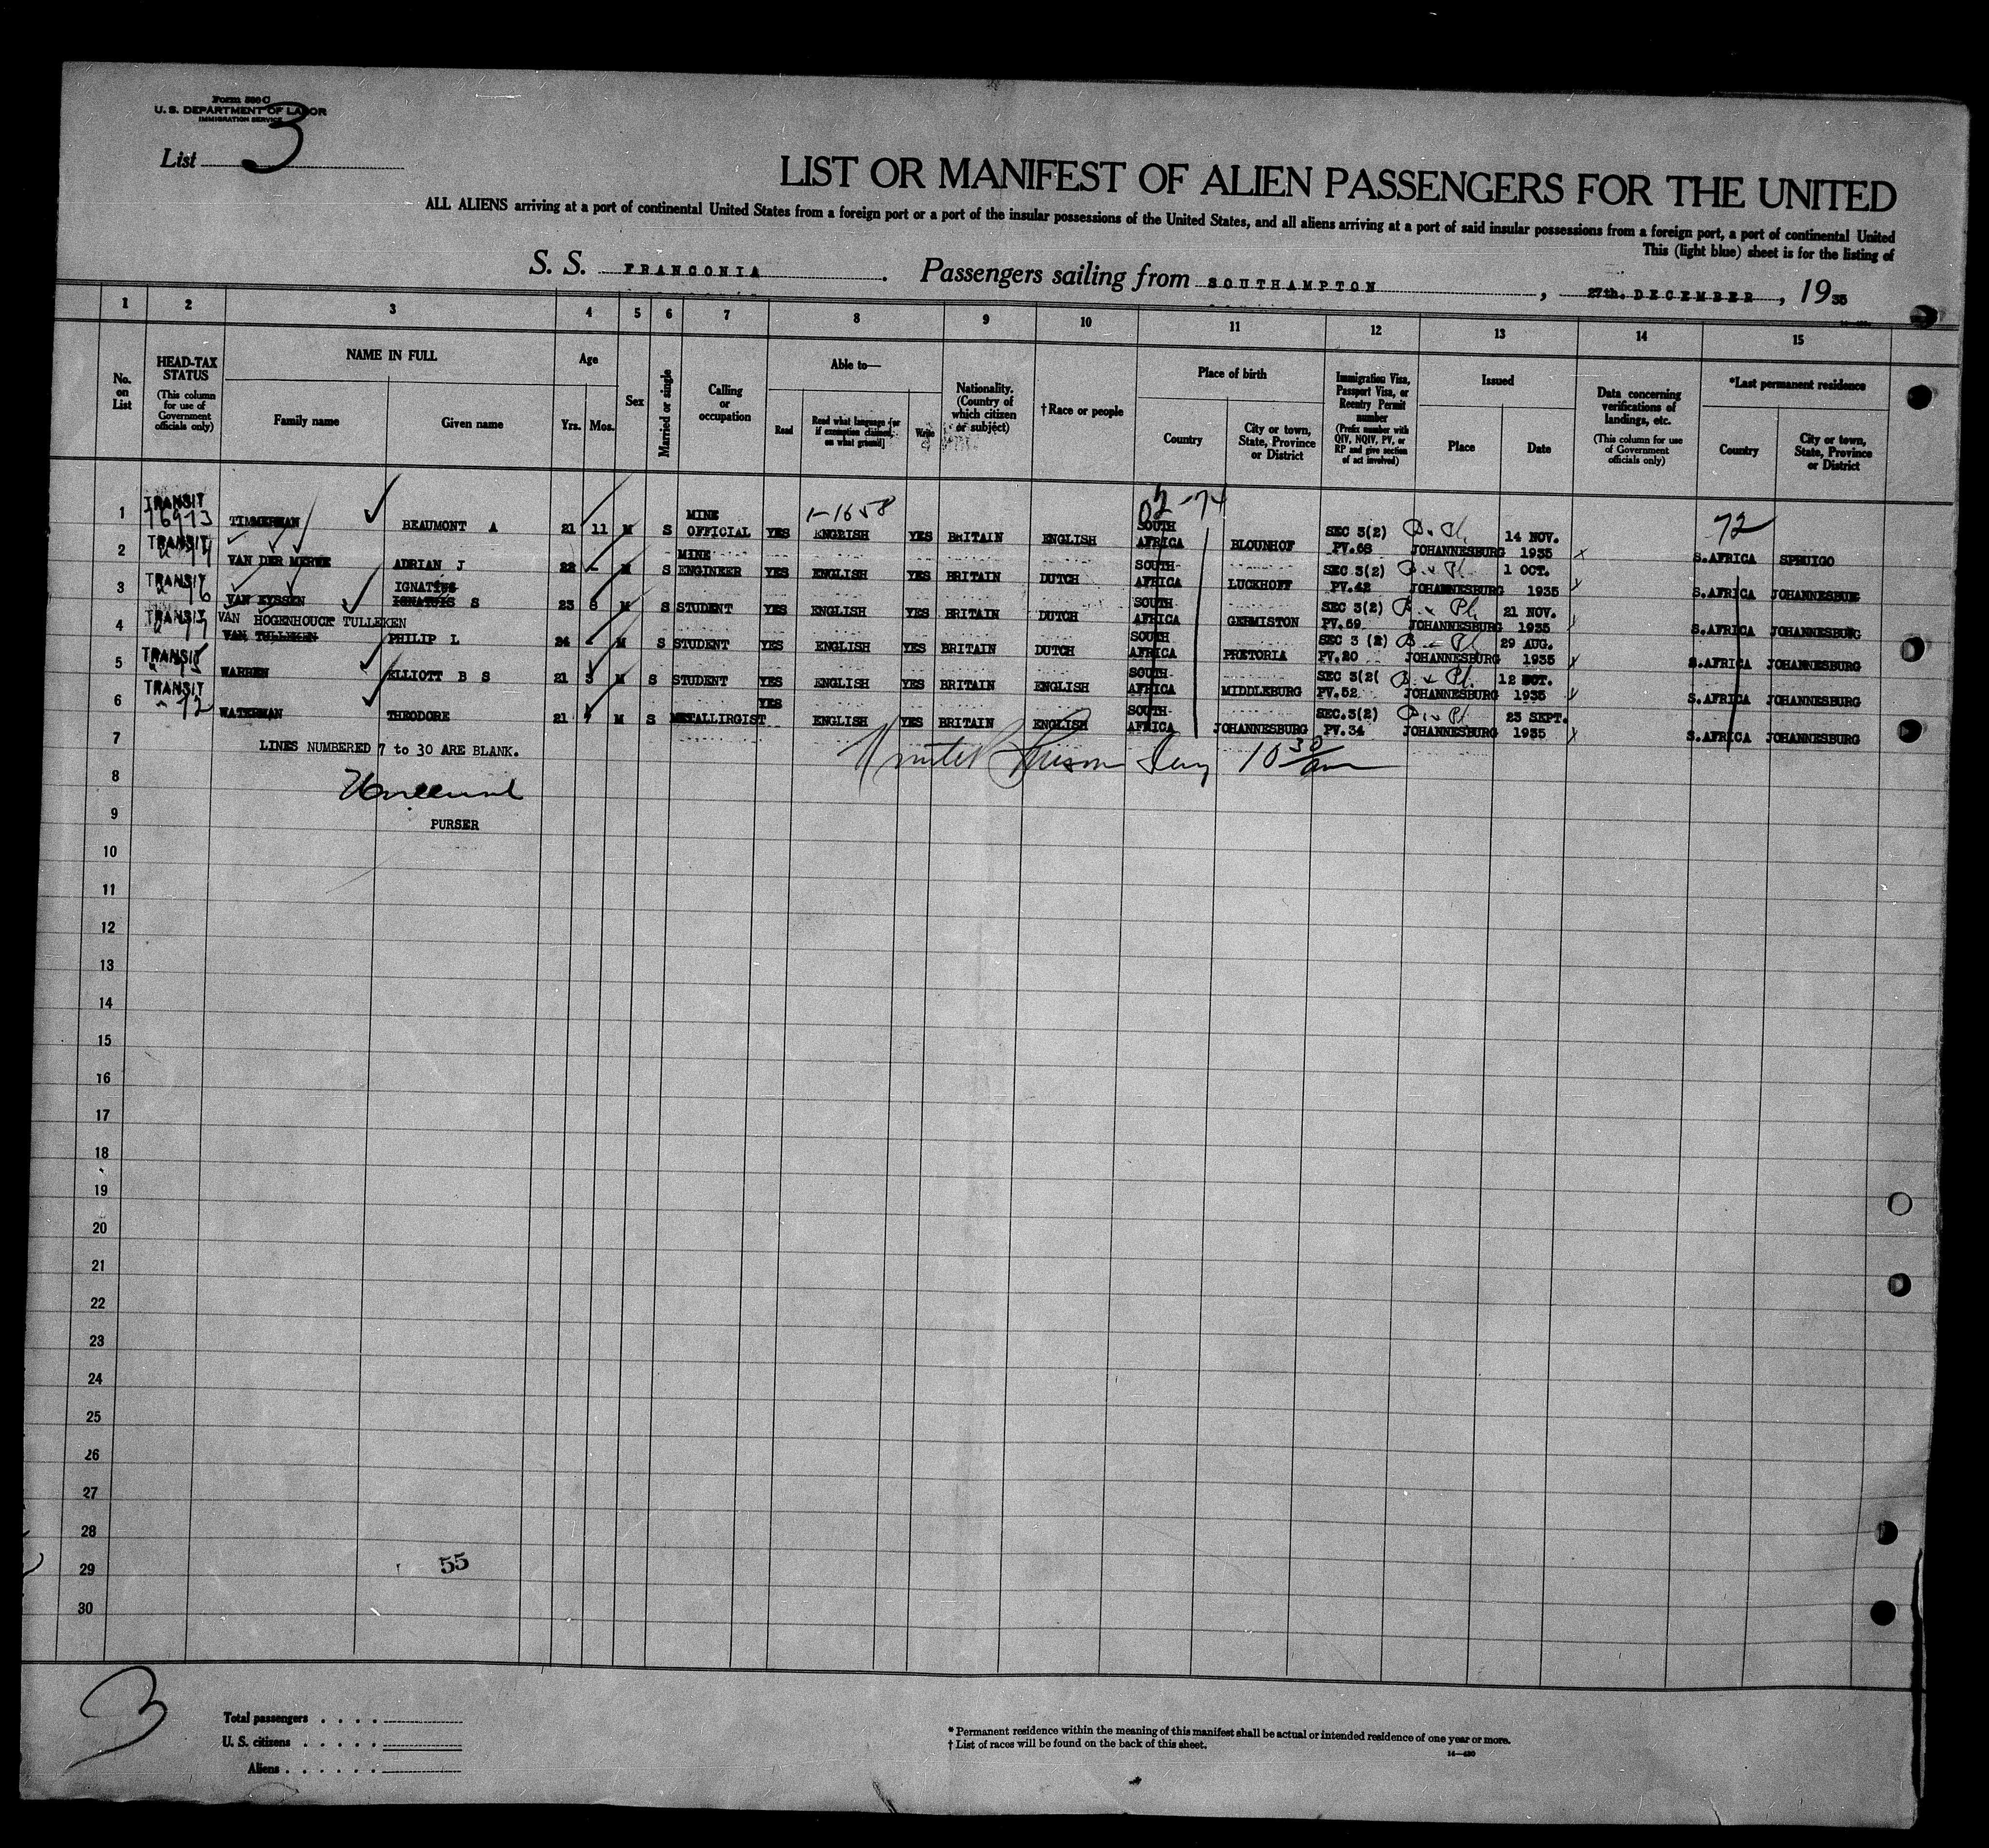 Form 500 C
U. S. DEPARTMENT OF LABOR
IMMIGRATION SERVICE
List 3
LIST OR MANIFEST OF ALIEN PASSENGERS FOR THE UNITED
ALL ALIENS arriving at a port of continental United States from a foreign port or a port of the insular possessions of the United States, and all aliens arriving at a port of said insular possessions from a foreign port, a port of continental United
This (light blue) sheet is for the listing of
S. S. FRANCONIA. Passengers sailing from SOUTHAMPTON, 27th. DECEMBER, 1935
1 2 3 4 5 6 7 8 9 10 11 12 13 14 15
No. on List
HEAD-TAX STATUS (This column for use of Government officials only)
NAME IN FULL
Family name Given name
Age
Yrs. Mos.
Sex
Married or single
Calling or occupation
Able to—
Read Read what language [or if exemption claimed, on what ground] Write
Nationality. (Country of which citizen or subject)
† Race or people
Place of birth
Country City or town, State, Province or District
Immigration Visa, Passport Visa, or Reentry Permit number (Prefix number with QIV, NQIV, PV, or RP and give section of act involved)
Issued
Place Date
Data concerning verifications of landings, etc. (This column for use of Government officials only)
*Last permanent residence
Country City or town, State, Province or District
1-1658 02-74 72
1 TRANSIT 16973 TIMMERMAN BEAUMONT A 21 11 M S MINE OFFICIAL YES ENGLISH YES BRITAIN ENGLISH SOUTH AFRICA BLOUNHOF SEC 3(2) PV.68 JOHANNESBURG 14 NOV. 1935 S.AFRICA SPRUIGO
2 TRANSIT 74 VAN DER MERWE ADRIAN J 22 - M S MINE ENGINEER YES ENGLISH YES BRITAIN DUTCH SOUTH AFRICA LUCKHOFF SEC 3(2) PV.42 JOHANNESBURG 1 OCT. 1935 S.AFRICA JOHANNESBUG
3 TRANSIT 76 VAN EYSSEN IGNATIUS S 23 8 M S STUDENT YES ENGLISH YES BRITAIN DUTCH SOUTH AFRICA GERMISTON SEC 3(2) PV.69 JOHANNESBURG 21 NOV. 1935 S.AFRICA JOHANNESBURG
VAN HOGENHOUCK TULLEKEN
4 TRANSIT 77 VAN TULLEKEN PHILIP L 24 - M S STUDENT YES ENGLISH YES BRITAIN DUTCH SOUTH AFRICA PRETORIA SEC 3 (2) PV.20 JOHANNESBURG 29 AUG. 1935 S.AFRICA JOHANNESBURG
5 TRANSIT 75 WARREN ELLIOTT B S 21 3 M S STUDENT YES ENGLISH YES BRITAIN ENGLISH SOUTH AFRICA MIDDLEBURG SEC 3(2( PV.52 JOHANNESBURG 12 OCT. 1935 S.AFRICA JOHANNESBURG
6 TRANSIT 72 WATERMAN THEODORE 21 M S METALLIRGIST YES ENGLISH YES BRITAIN ENGLISH SOUTH AFRICA JOHANNESBURG SEC.3(2) PV.34 JOHANNESBURG 23 SEPT. 1935 S.AFRICA JOHANNESBURG
7 LINES NUMBERED 7 to 30 ARE BLANK. 10 30
8
9 PURSER
10
11
12
13
14
15
16
17
18
19
20
21
22
23
24
25
26
27
28
29 55
30
3
Total passengers . . . .
U. S. citizens . . . . .
Aliens . . . . . .
* Permanent residence within the meaning of this manifest shall be actual or intended residence of one year or more.
† List of races will be found on the back of this sheet.
14—430